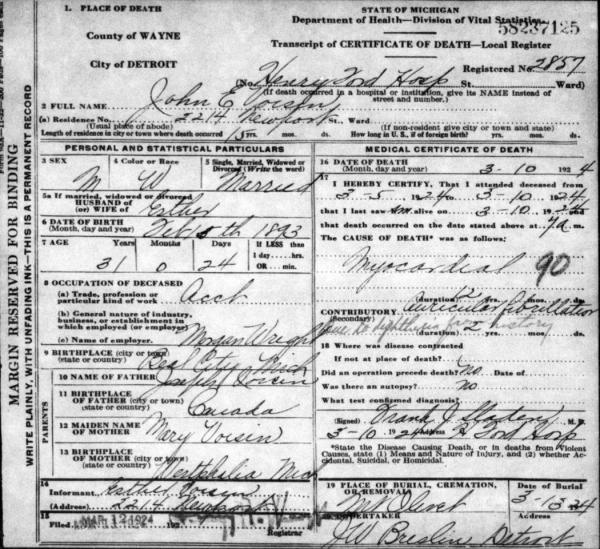 1. PLACE OF DEATH
County of WAYNE
City of DETROIT
STATE OF MICHIGAN
Department of Health—Division of Vital Statistics
58237125
Transcript of CERTIFICATE OF DEATH—Local Register
Registered No. 2857
(No. Henry Ford Hosp St. Ward)
(If death occurred in a hospital or institution, give its NAME instead of street and number.)
2 FULL NAME John E Voisin
(a) Residence No. 2214 Newport St., Ward
(Usual place of abode) (If non-resident give city or town and state)
Length of residence in city or town where death occurred yrs. mos. ds. How long in U. S., if of foreign birth? yrs. mos. ds.
MARGIN RESERVED FOR BINDING
WRITE PLAINLY, WITH UNFADING INK—THIS IS A PERMANENT RECORD
PERSONAL AND STATISTICAL PARTICULARS
3 SEX 4 Color or Race 5 Single, Married, Widowed or Divorced (Write the word)
M W Married
5a If married, widowed or divorced
HUSBAND of
(or) WIFE of Esther
6 DATE OF BIRTH
(Month, day and year) Feb 1893
7 AGE Years Months Days If LESS than
1 day....hrs.
OR....min.
31 0 24
8 OCCUPATION OF DECEASED
(a) Trade, profession or particular kind of work Acct
(b) General nature of industry, business, or establishment in which employed (or employer)
(c) Name of employer Morgan Wright
9 BIRTHPLACE (city or town)
(state or country) City Mich
PARENTS
10 NAME OF FATHER Joseph Voisin
11 BIRTHPLACE
OF FATHER (city or town)
(state or country) Canada
12 MAIDEN NAME
OF MOTHER Mary Voisin
13 BIRTHPLACE
OF MOTHER (city or town)
(state or country) Mich
14
Informant Esther Voisin
(Address) 2214 Newport
15
Filed MAR 12 1924 192
Registrar
MEDICAL CERTIFICATE OF DEATH
16 DATE OF DEATH
(Month, day and year) 3-10 1924
17
I HEREBY CERTIFY, That I attended deceased from
3-5 1924 to 3-10 1924
that I last saw him alive on 3-10 1924
and that death occurred on the date stated above at m.
The CAUSE OF DEATH* was as follows:
Myocardial 90
(duration) yrs. mos. ds.
CONTRIBUTORY Auricular fibrillation
(Secondary)
(duration) yrs. mos. ds.
18 Where was disease contracted
If not at place of death?
Did an operation precede death? no Date of
Was there an autopsy? no
What test confirmed diagnosis?
(Signed) Frank J. Sladen M. D.
3-10 1924 Address Ford Hosp
*State the Disease Causing Death, or in deaths from Violent Causes, state (1) Means and Nature of Injury, and (2) whether Accidental, Suicidal, or Homicidal.
19 PLACE OF BURIAL, CREMATION, OR REMOVAL Date of Burial
Mt Olivet 3-13-24
UNDERTAKER
Detroit